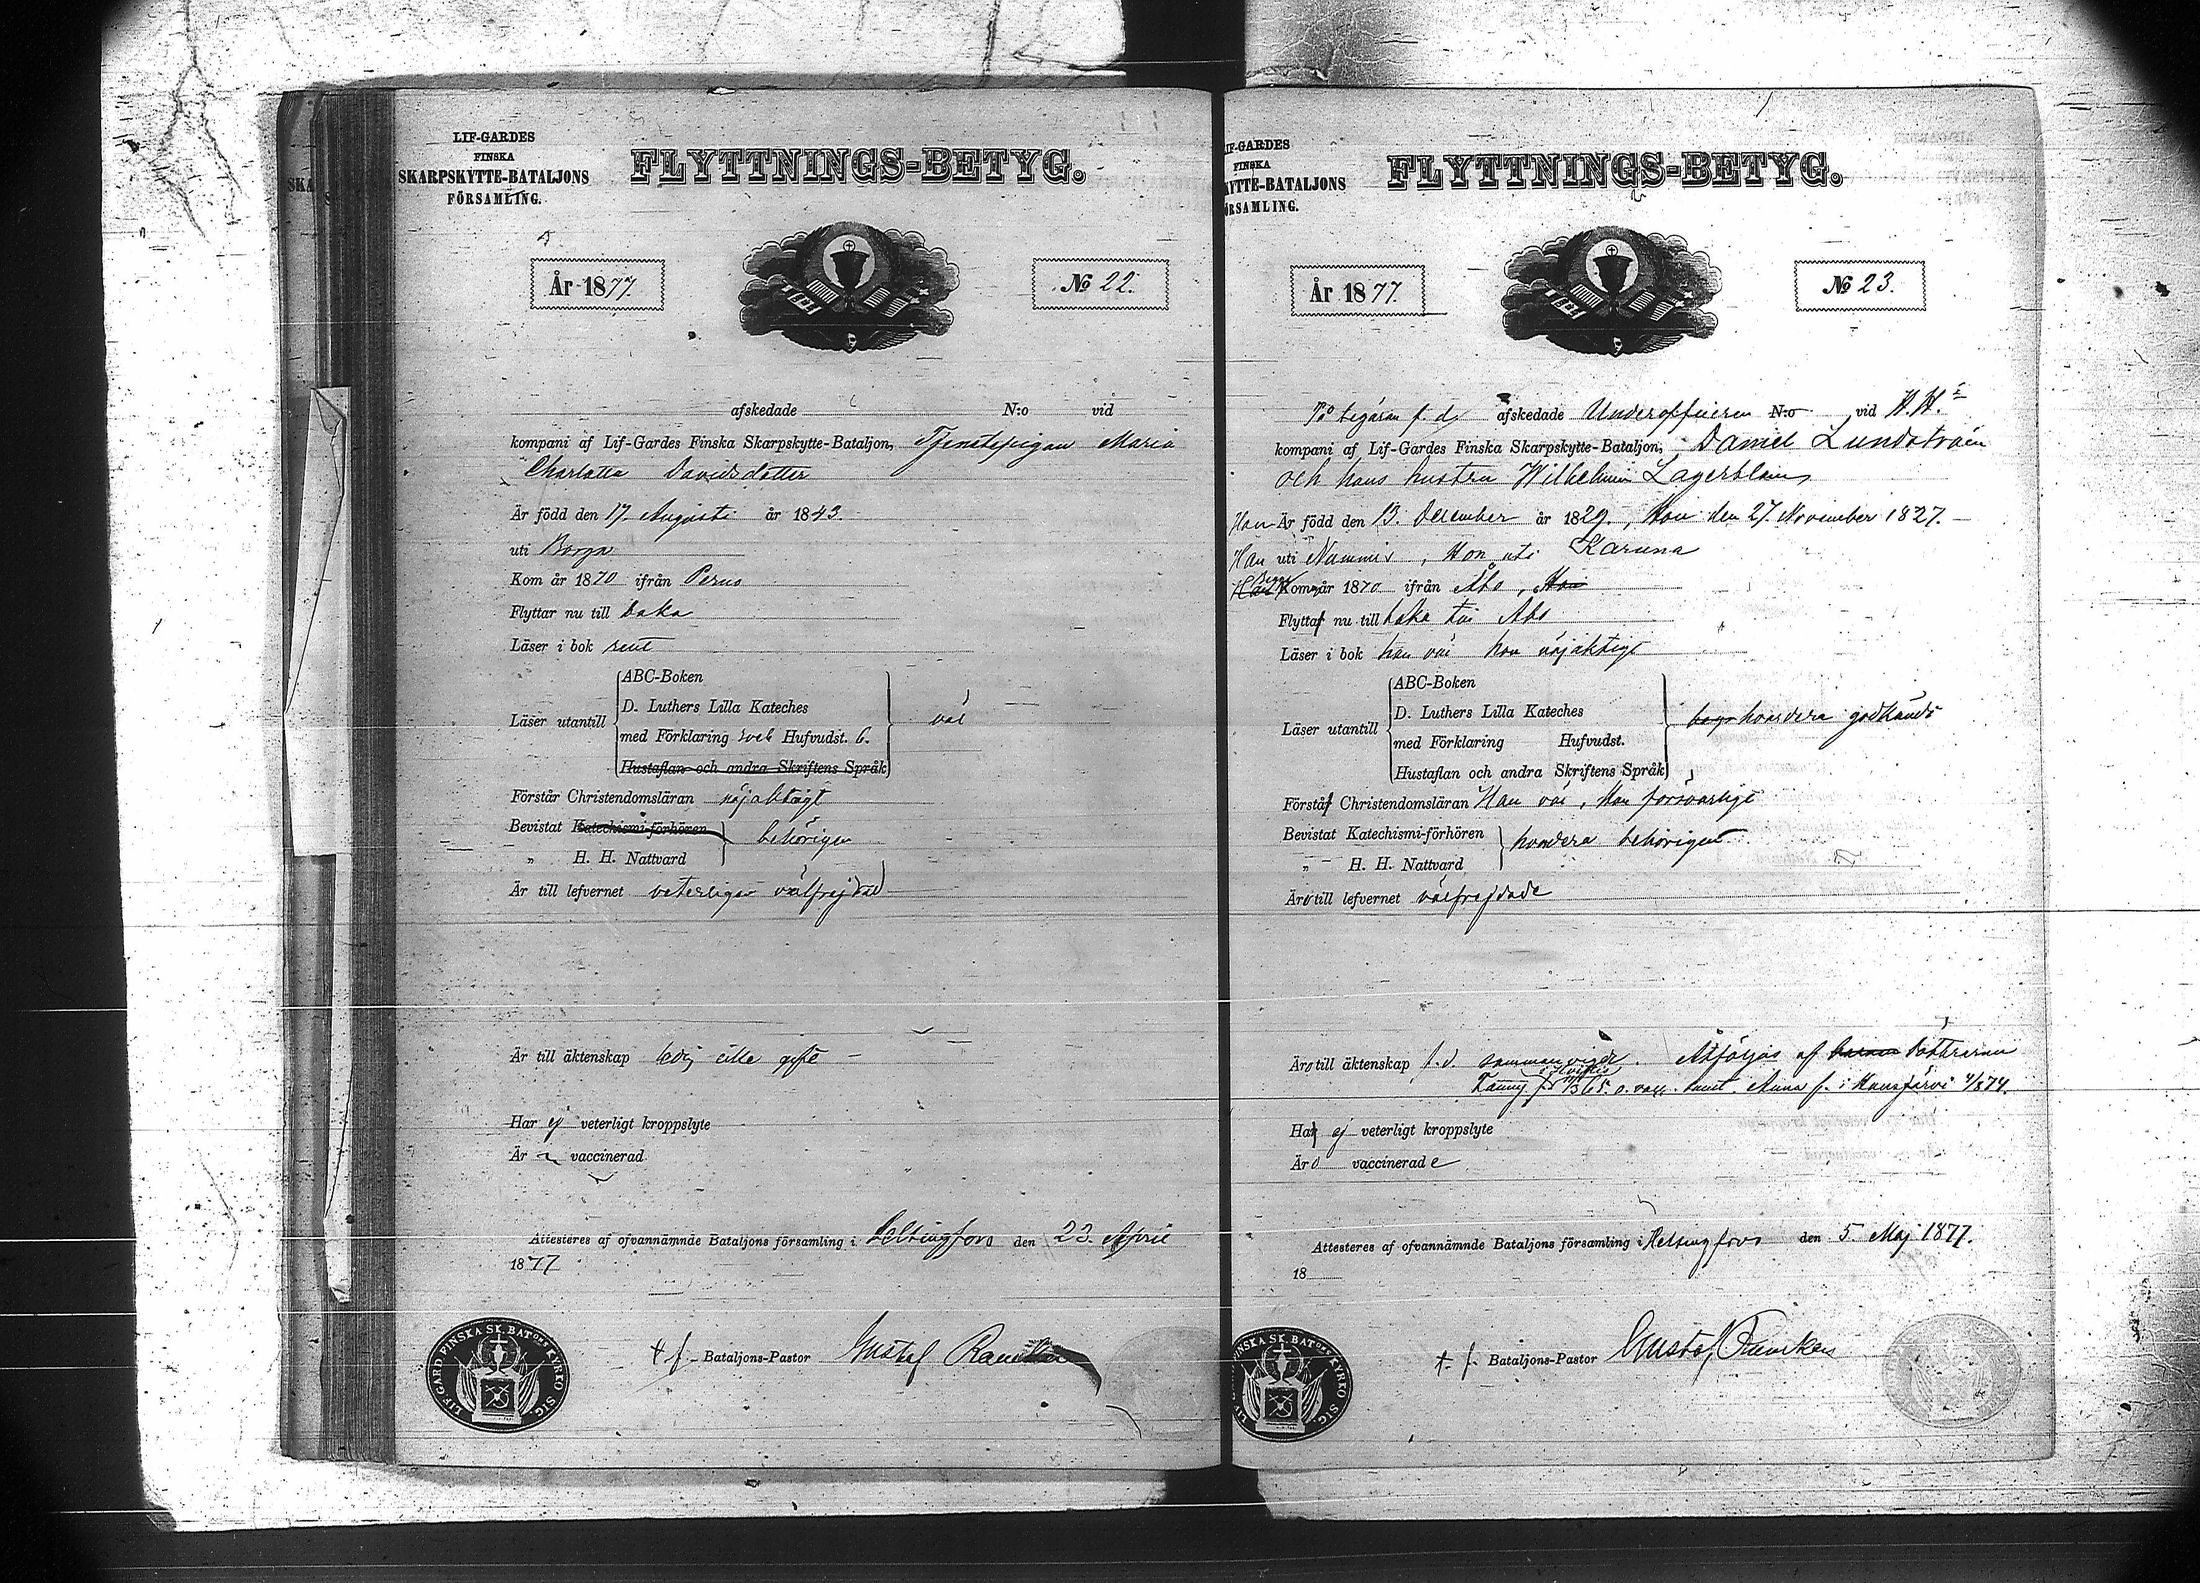 LIF-GARDES
FINSKA
SKARPSKYTTE-BATALJONS
FÖRSAMLING.
FLYTTNINGS-BETYG.
År 1877.
№ 22.
afskedade N:o vid
kompani af Lif-Gardes Finska Skarpskytte-Bataljon, Tjenstepigan Maria
Charlotta Davidsdotter
Är född den 17. Augusti år 1843.
uti Borgå
Kom år 1870 ifrån Perno
Flyttar nu till baka
Läser i bok rent
ABC-Boken
D. Luthers Lilla Kateches
Läser utantill
med Förklaring Hufvudst. 6.
väl
Hustaflan och andra Skriftens Språk
Förstår Christendomsläran nöjaktigt
Bevistat Katechismi-förhören
" H. H. Nattvard
behörigen
Är till lefvernet veterligen välfrejdad
Är till äktenskap ledig
Har ej veterligt kroppslyte
Är vaccinerad
Attesteres af ofvannämnde Bataljons församling i Helsingfors den 23. April
1877
t. f. Bataljons-Pastor Gustaf
LIF. GARD FINSKA SK. BAT:ONS KYRKO SIG.
IF-GARDES
FINSKA
KYTTE-BATALJONS
ÖRSAMLING.
FLYTTNINGS-BETYG.
År 1877.
№ 23.
På begäran f. d. afskedade Underofficeren N:o vid
kompani af Lif-Gardes Finska Skarpskytte-Bataljon, Daniel Lundström
och hans hustru Wilhelmina Lagerblom
Han Är född den 13. December år 1829., Hon den 27. November 1827.
Han uti Nummis, Hon uti Karuna
Kom år 1870 ifrån Åbo, Hon
Flytta nu till baka till Åbo
Läser i bok han väl hon nöjaktigt
ABC-Boken
D. Luthers Lilla Kateches
Läser utantill
med Förklaring Hufvudst.
hvardera godkändt
Hustaflan och andra Skriftens Språk
Förstå Christendomsläran Han väl, Hon försvarligt
Bevistat Katechismi-förhören
" H. H. Nattvard
hvardera behörigen
Äro till lefvernet välfrejdade
Äro till äktenskap f. d. sammanvigde. Åtföljas af barnen döttrarna
Fanny samt Anna f. i Hausjärvi
Ha ej veterligt kroppslyte
Äro vaccinerade
Attesteres af ofvannämnde Bataljons församling i Helsingfors den 5 Maj 1877.
18
t. f. Bataljons-Pastor Gustaf
FINSKA SK. BAT:ONS KYRKO SIG.